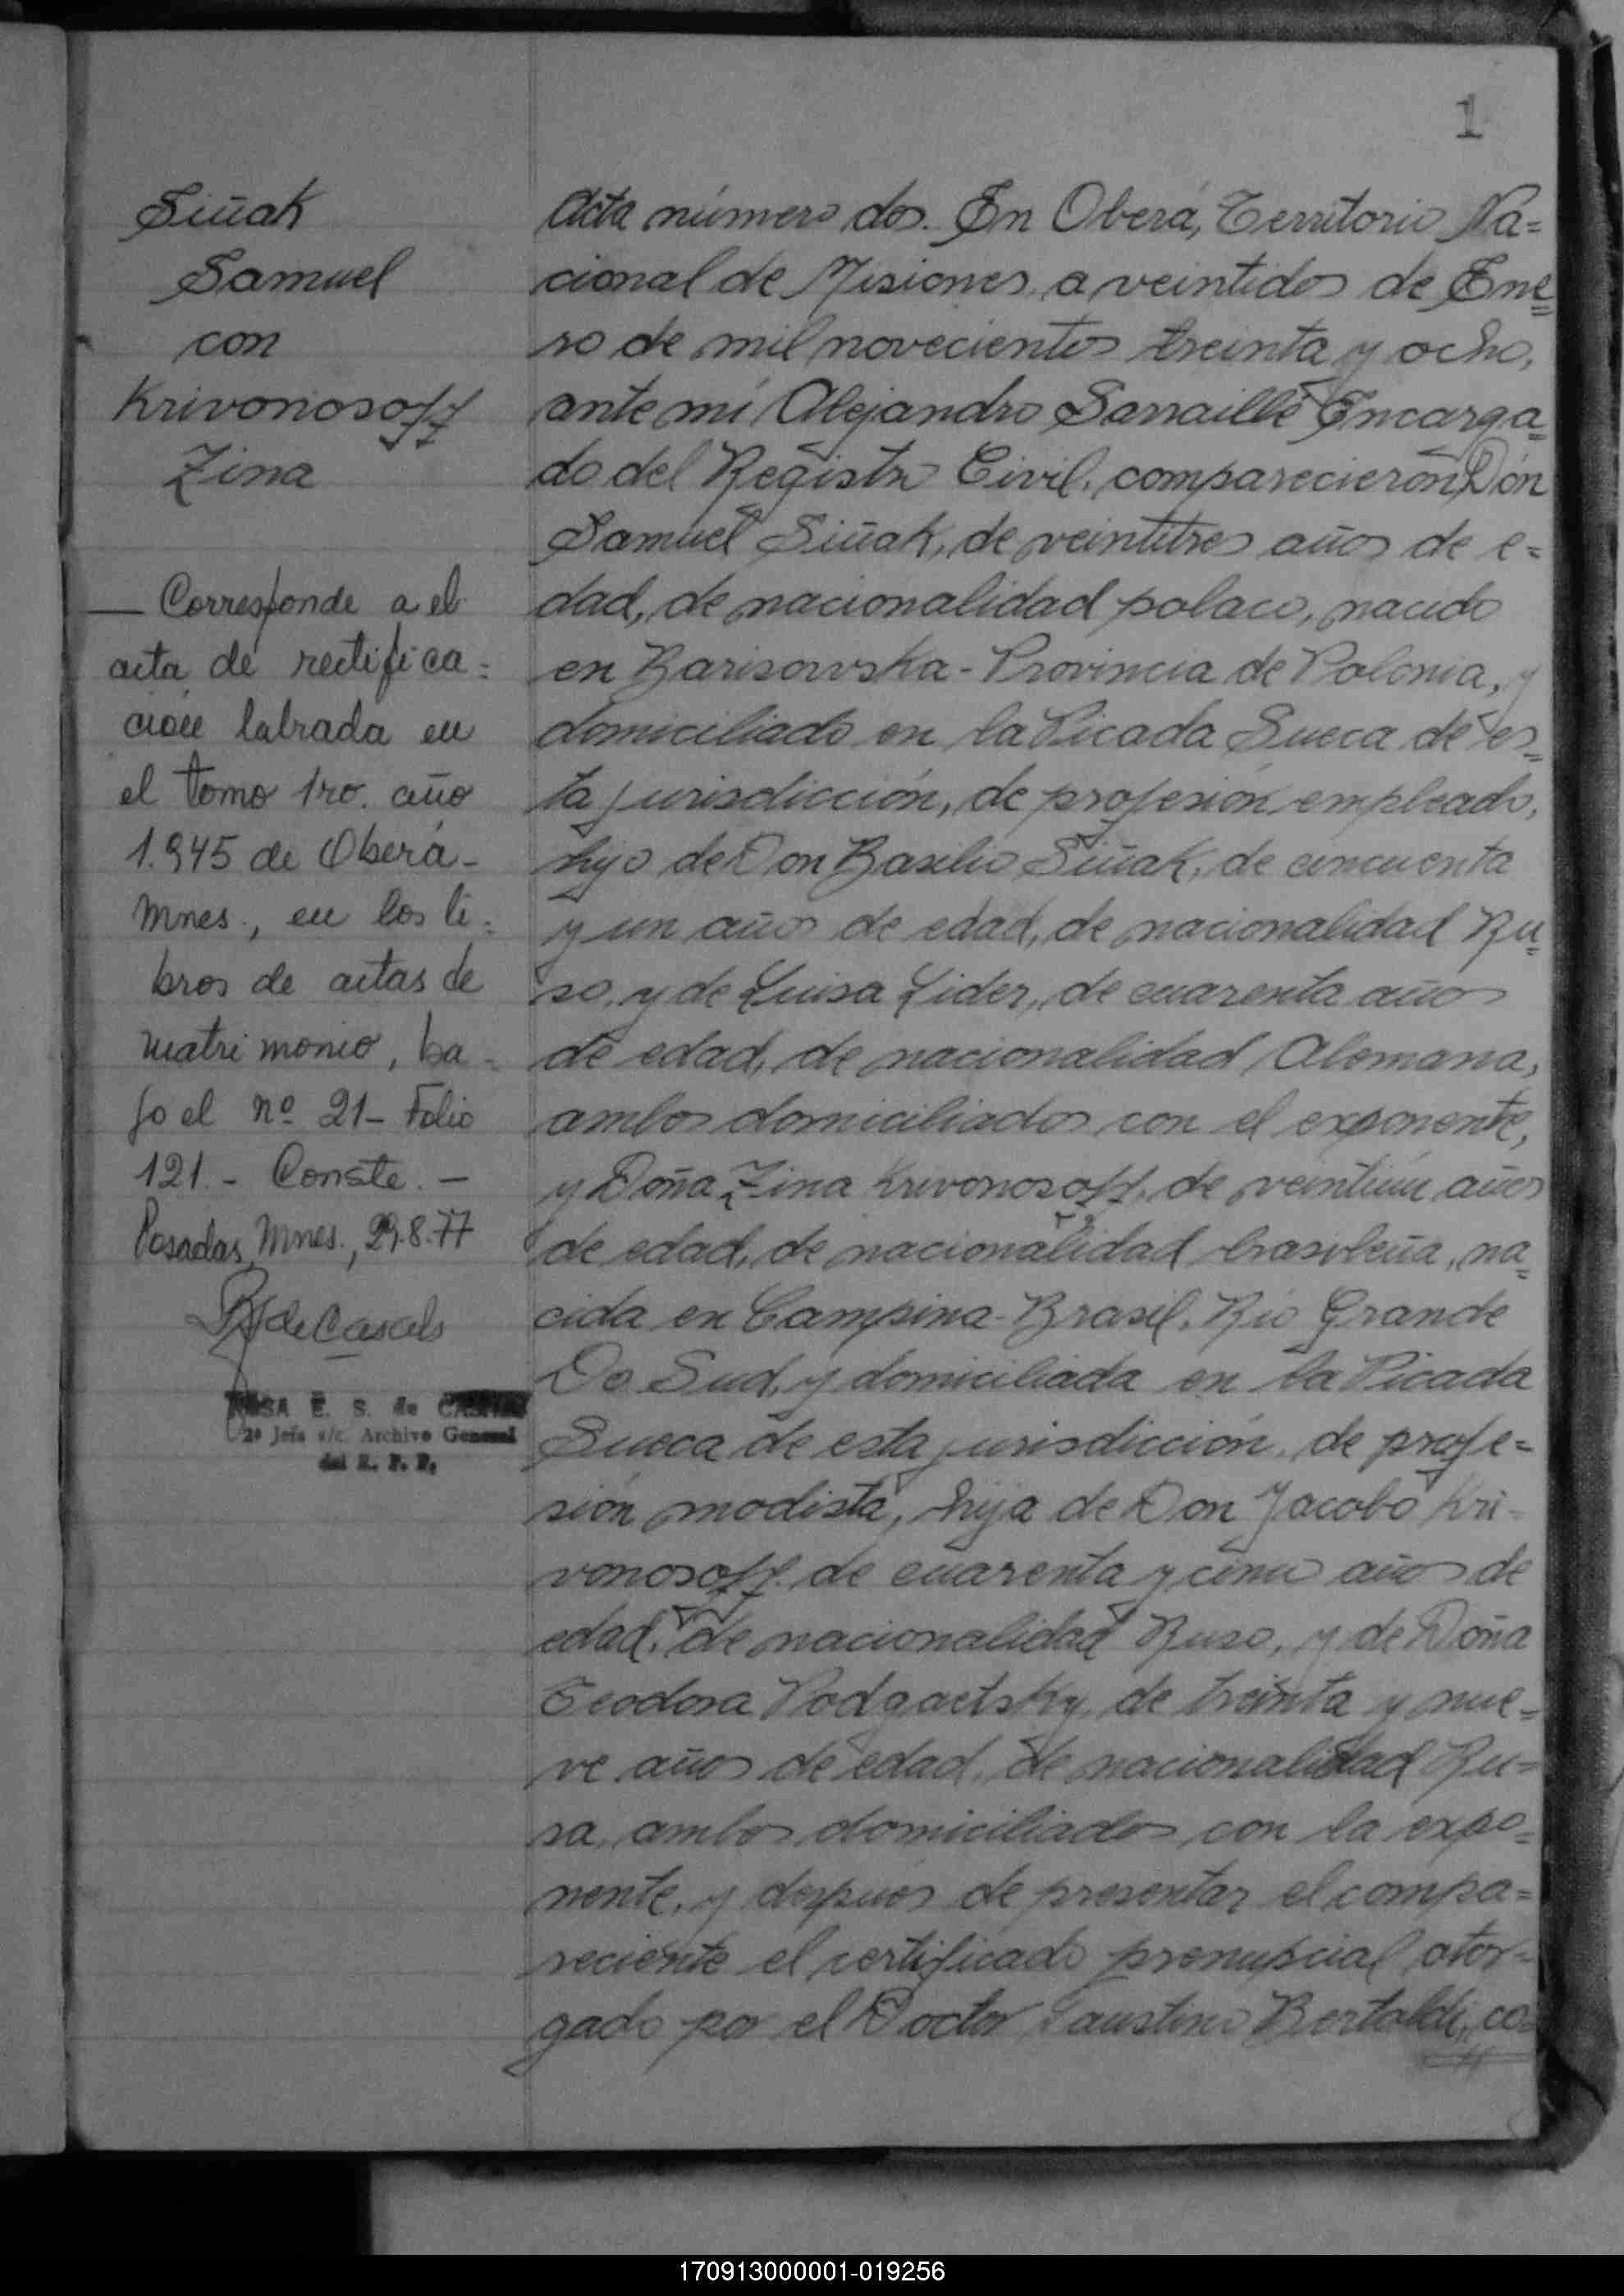 1
Siñak
Samuel
con
Krivonosoff
Zina
— Corresponde a el
acta de rectifica=
ción labrada en
el tomo 1ro. año
1.945 de Oberá-
Mnes., en los li=
bros de actas de
matrimonio, ba-
jo el nº 21- Folio
121.- Conste.-
Posadas, Mnes., 29.8.77
de Casals
ROSA E. S. de
2º Jefa s/c. Archivo General
del R. P. P.
Acta número dos. En Oberá, Territorio Na=
cional de Misiones, a veintidos de Ene=
ro de mil novecientos treinta y ocho,
ante mi Alejandro Sarraillé Encarga=
do del Registro Civil, comparecieron Don
Samuel Siñak, de veintitres años de e=
dad, de nacionalidad polaco, nacido
en Barisowska - Provincia de Polonia, y
domiciliado en la Picada Sueca de es=
ta jurisdicción, de profesión empleado,
hijo de Don Basilio Siñak, de cincuenta
y un años de edad, de nacionalidad Ru=
so, y de Luisa Lider, de cuarenta años
de edad, de nacionalidad Alemana,
ambos domiciliados con el exponente,
y Doña Zina Krivonosoff, de veintiun años
de edad, de nacionalidad brasileña, na=
cida en Campina-Brasil, Rio Grande
Do Sud, y domiciliada en la Picada
Sueca de esta jurisdicción, de profe=
sión modista, hija de Don Jacobo Kri-
vonosoff, de cuarenta y cinco años de
edad, de nacionalidad Ruso, y de Doña
Teodora Podgaetsky, de treinta y nue=
ve años de edad, de nacionalidad Ru=
sa, ambos domiciliados con la expo=
nente, y despues de presentar el compa=
reciente el certificado prenupcial otor=
gado por el Doctor Faustino Bertoldi, co=
170913000001-019256